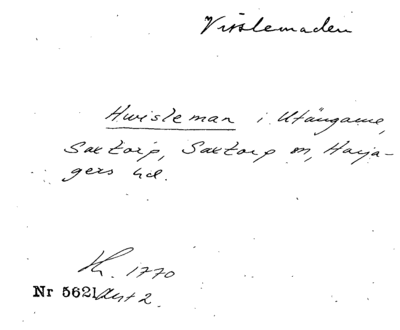 Visslemaden
Hwisleman i Utängarne,
Saxtorp, Saxtorp sn, Harja-
gers hd.
1770
Nr 5621 Akt 2.